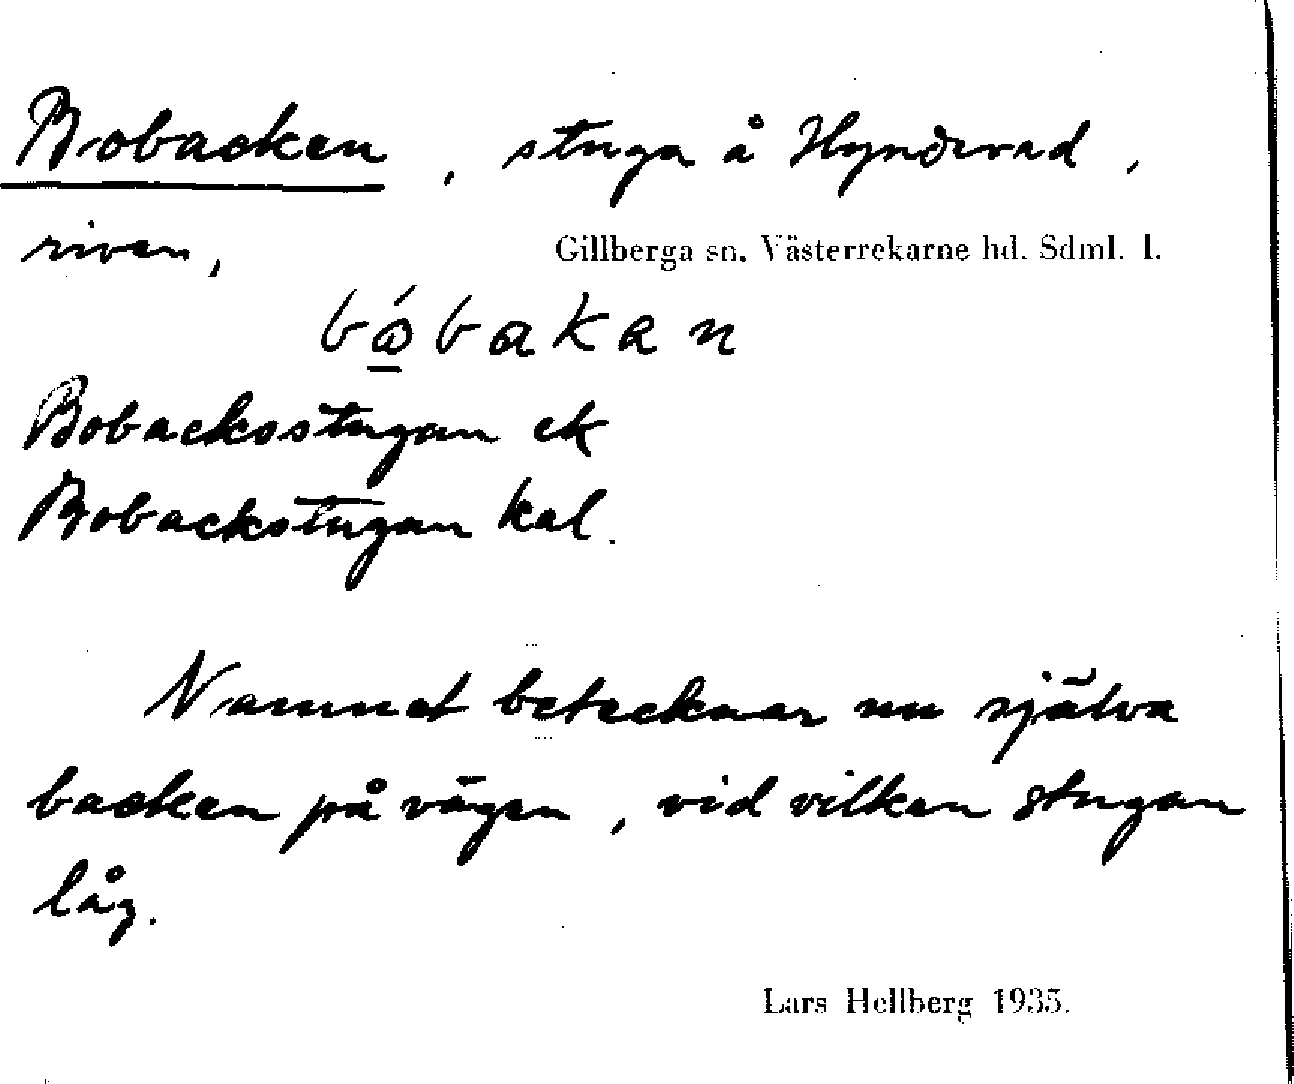 Bobacken, stuga å Hyndevad,
riven, Gillberga sn. Västerrekarne hd. Sdml. l.
bóbakan
Bobackostugan ek
Bobackstugan kal.
Namnet betecknar nu själva
backen på vägen, vid vilken stugan
låg.
Lars Hellberg 1935.